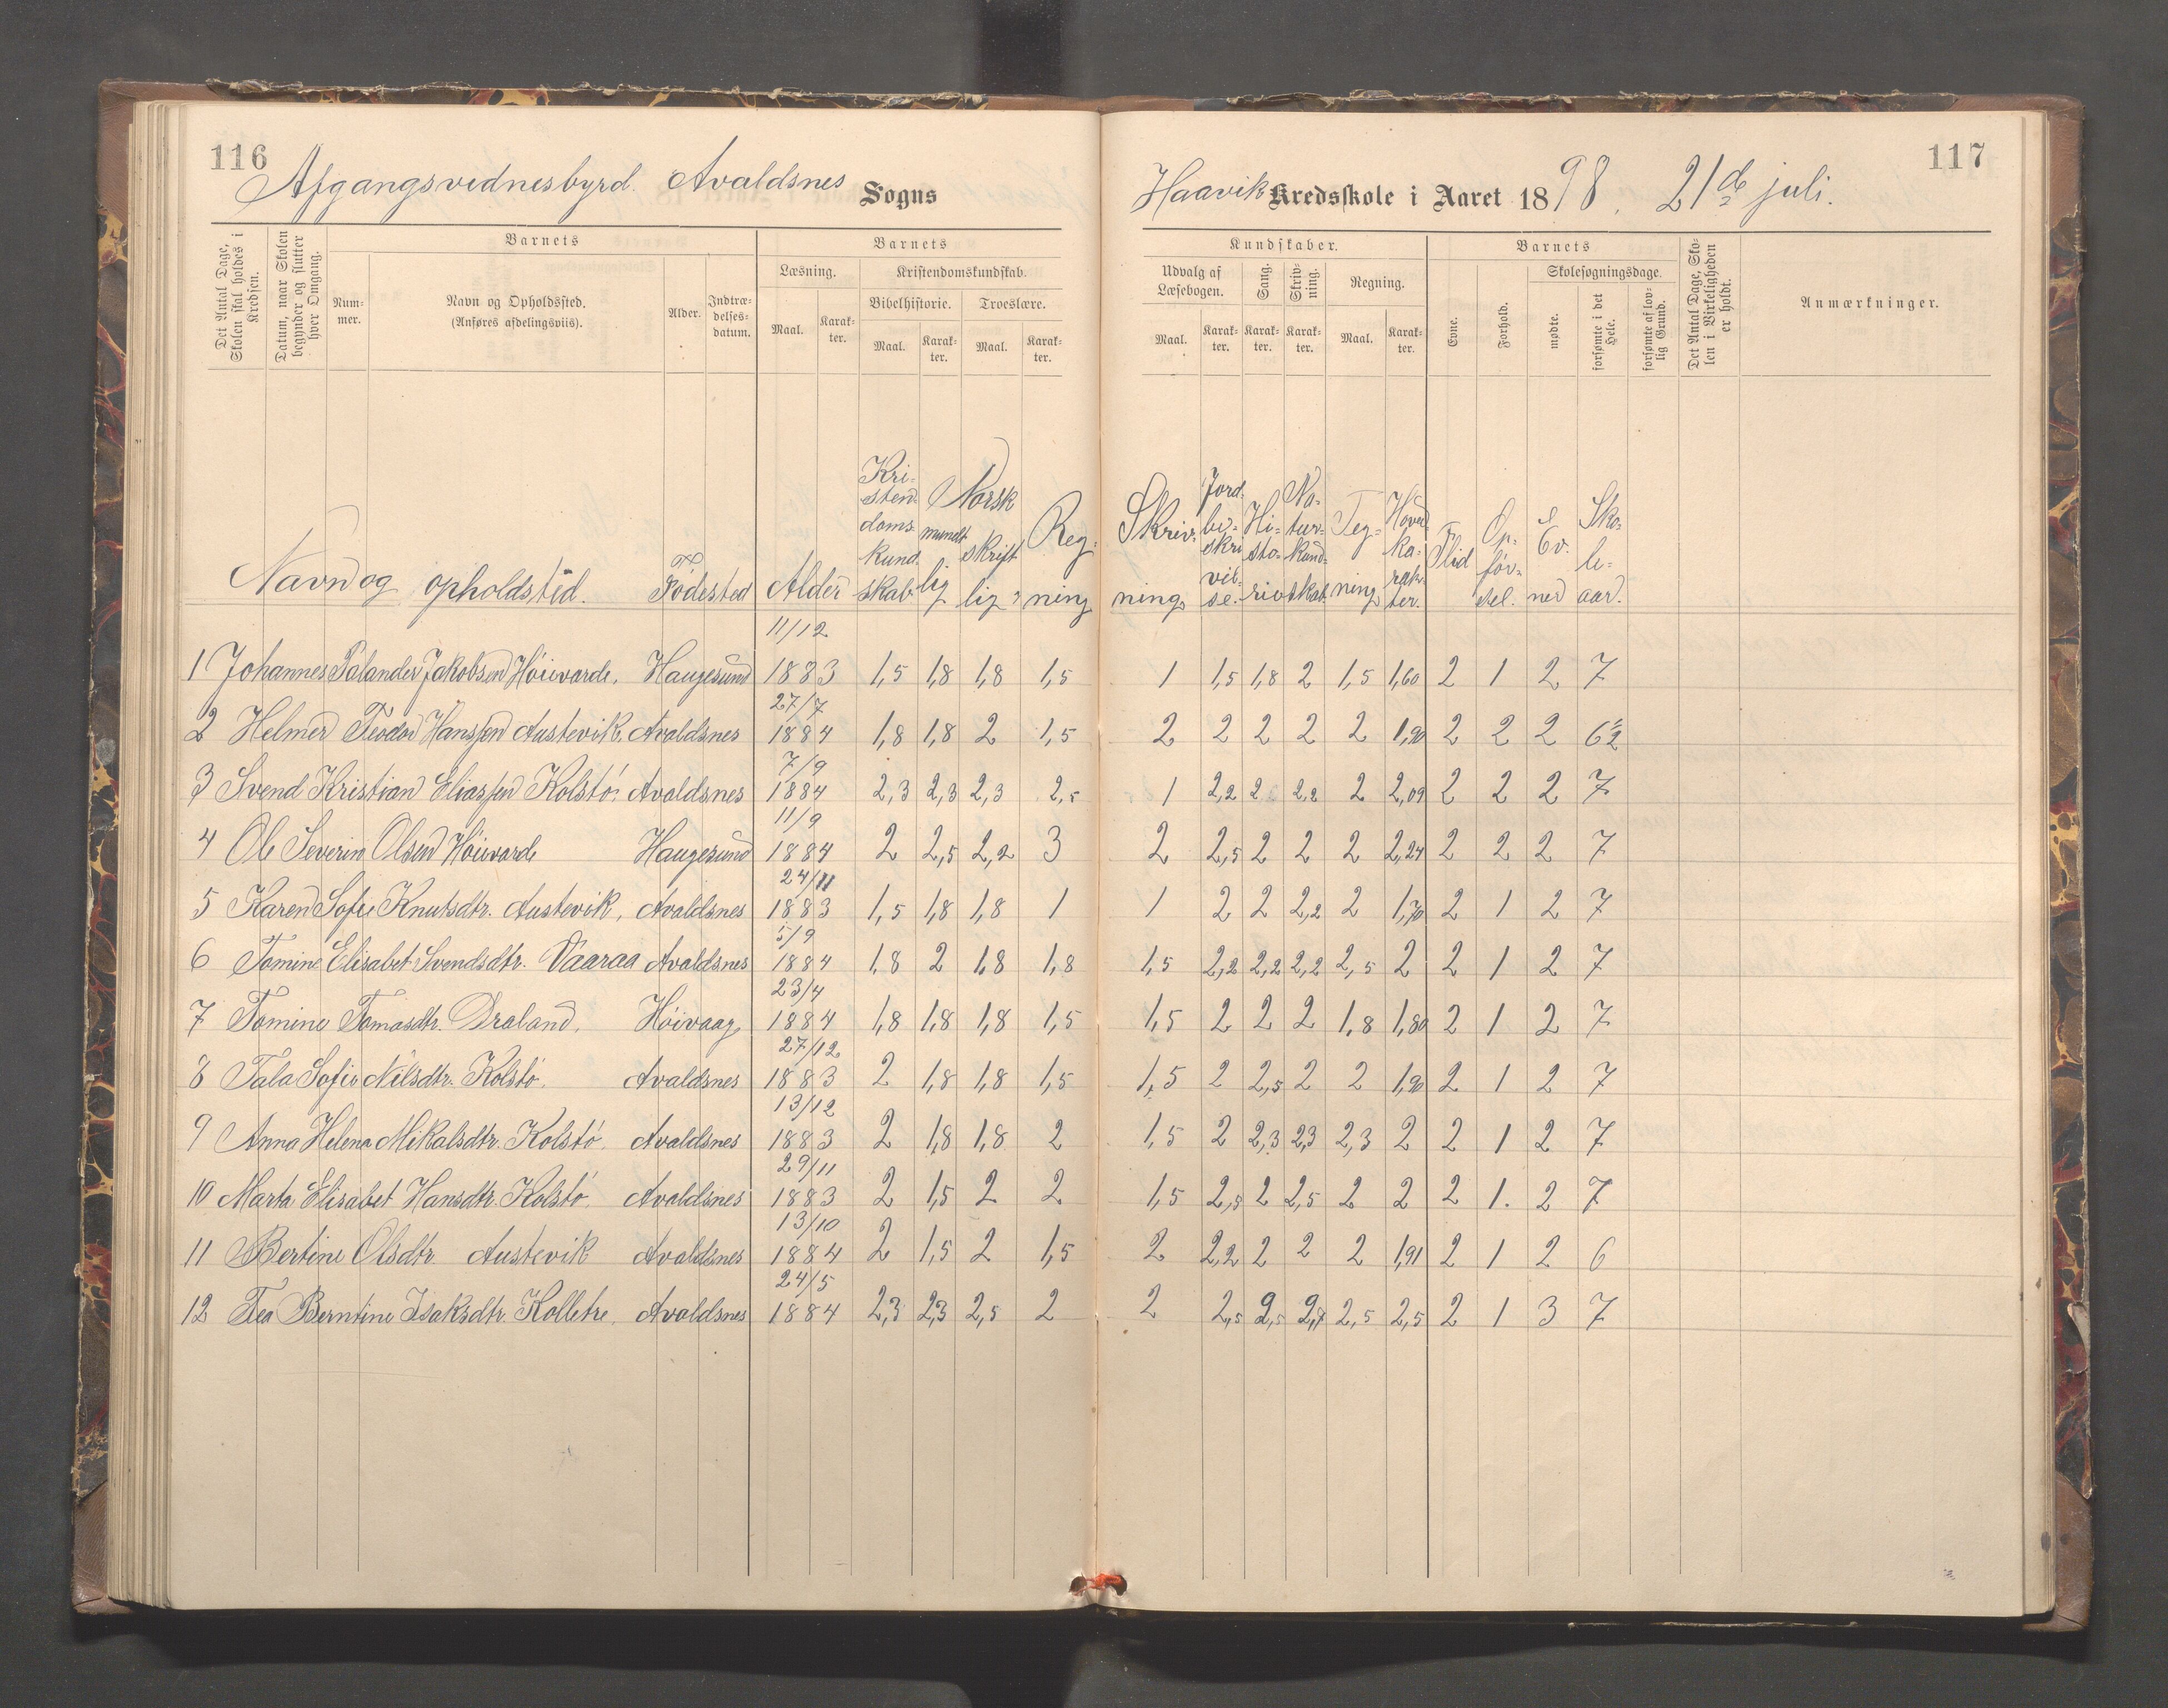 116
Afgangsvidnesbyrd. Avaldsnes Sogns
Det Antal Dage, Skolen skal holdes i Kredsen.
Datum, naar Skolen begynder og slutter hver Omgang.
Barnets
Nummer.
Navn og Opholdssted.
(Anføres afdelingsviis).
Alder.
Indtrædelses-datum.
Barnets
Læsning.
Kristendomskundskab.
Bibelhistorie. Troeslære.
Maal. Karakter. Maal. Karakter. Maal. Karakter.
Navn og opholdsted. Födested Alder Kristendomskundskab Norsk mundtlig skriftlig Regning
1 Johannes Palander Jakobsen Höievarde. Haugesund 11/12 1883 1,5 1,8 1,8 1,5
2 Helmer Teodor Hanssen Austevik. Avaldsnes 27/7 1884 1,8 1,8 2 1,5
3 Svend Kristian Eliassen Kolstö. Avaldsnes 7/9 1884 2,3 2,3 2,3 2,5
4 Ole Severin Olsen Höievarde Haugesund 11/9 1884 2 2,5 2,2 3
5 Karen Sofie Knutsdtr. Austevik, Avaldsnes 24/11 1883 1,5 1,8 1,8 1
6 Tomine Elisabet Svendsdtr. Vaaraa Avaldsnes 5/9 1884 1,8 2 1,8 1,8
7 Tomine Tomasdtr. Draland, Höivaag 23/4 1884 1,8 1,8 1,8 1,5
8 Tala Sofie Nilsdtr. Kolstö. Avaldsnes 27/12 1883 2 1,8 1,8 1,5
9 Anna Helena Mikalsdtr. Kolstö. Avaldsnes 13/12 1883 2 1,8 1,8 2
10 Marta Elisabet Hansdtr. Kolstö. Avaldsnes 29/11 1883 2 1,5 2 2
11 Bertine Olsdtr. Austevik Avaldsnes 13/10 1884 2 1,5 2 1,5
12 Tea Berntine Isaksdtr. Kolletre. Avaldsnes 24/5 1884 2,3 2,3 2,5 2
117
Haavik Kredsskole i Aaret 1898. 21de juli.
Kundskaber.
Udvalg af Læsebogen.
Sang.
Skrivning.
Regning.
Maal. Karakter. Karakter. Karakter. Maal. Karakter.
Barnets
Evne.
Forhold.
Skolesøgningsdage.
mødte.
forsømte i det Hele.
forsømte af lovlig Grund.
Det Antal Dage, Skolen i Virkeligheden er holdt.
Anmærkninger.
Skrivning Jordbeskrivelse. Historie Naturkundskab. Tegning Hovedkarakter. Flid Opførsel. Evner Skoleaar.
1 1,5 1,8 2 1,5 1,60 2 1 2 7
2 2 2 2 2 1,90 2 2 2 6½
1 2,2 2 2,2 2 2,09 2 2 2 7
2 2,5 2 2 2 2,24 2 2 2 7
1 2 2 2,2 2 1,70 2 1 2 7
1,5 2,2 2,2 2,2 2,5 2 2 1 2 7
1,5 2 2 2 1,8 1,80 2 1 2 7
1,5 2 2,5 2 2 1,90 2 1 2 7
1,5 2 2,3 2,3 2,3 2 2 1 2 7
1,5 2,5 2 2,5 2 2 2 1. 2 7
2 2,2 2 2 2 1,91 2 1 2 6
2 2,5 2,5 2,7 2,5 2,5 2 1 3 7